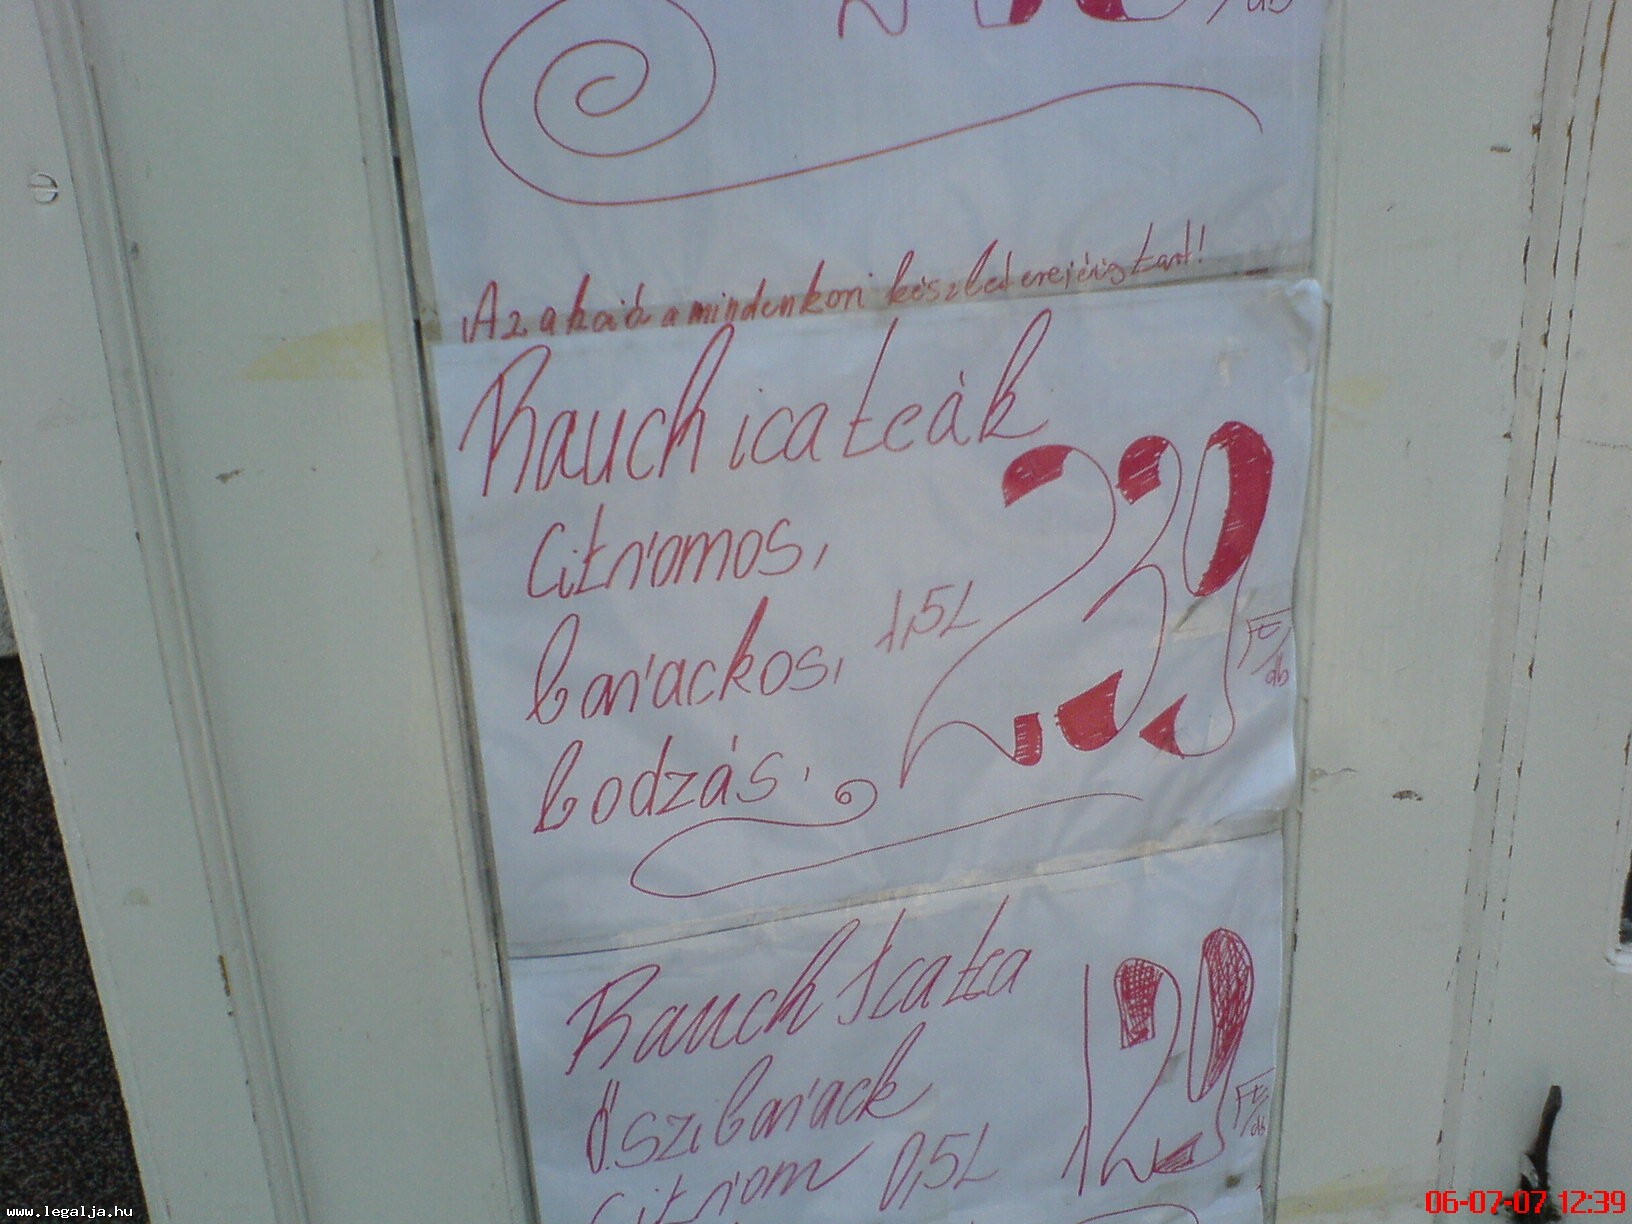 Az akció a mindenkori készlet erejéig tart!
Rauch icateák
Citromos,
barackos, 1,5L
bodzás,
239 Ft/db
Rauch Icatea
Őszibarack
Citrom 0,5L
129 Ft/db
www.legalja.hu
06-07-07 12:39